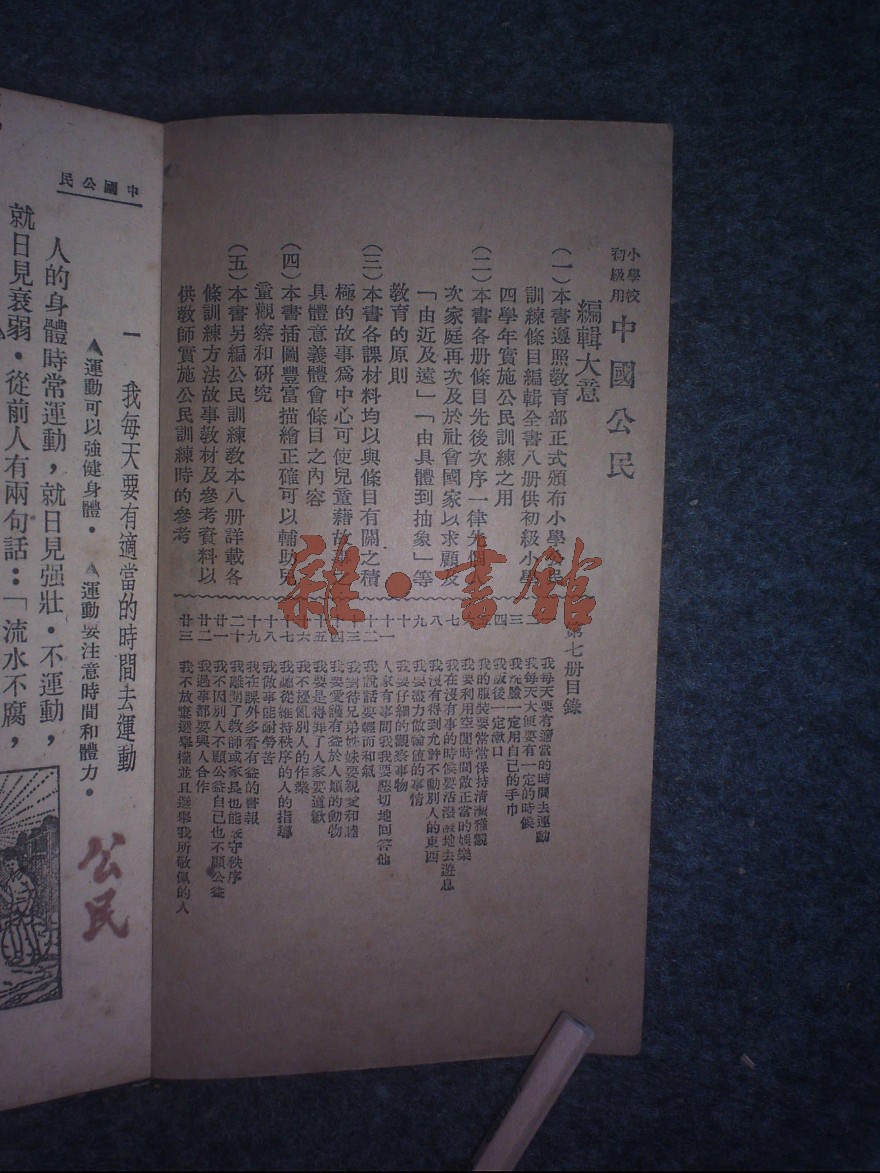 小學校
初級用
中國公民
編輯大意
（一）本書遵照教育部正式頒布小學公民
訓練條目編輯全書八册供初級小學
四學年實施公民訓練之用
（二）本書各册條目先後次序一律先個人
次家庭再次及於社會國家以求顧及
「由近及遠」「由具體到抽象」等
教育的原則
（三）本書各課材料均以與條目有關之積
極的故事爲中心可使兒童藉故事之
具體意義體會條目之內容
（四）本書插圖豐富描繪正確可以輔助兒
童觀察和研究
（五）本書另編公民訓練教本八册詳載各
條訓練方法故事教材及參考資料以
供教師實施公民訓練時的參考
第七册目錄
我每天要有適當的時間去運動
二 我每天大便要有一定的時候
三 我洗臉一定用自己的手巾
四 我飯後一定漱口
我的服裝要常常保持清潔雅觀
我要利用空閒時間做正當的娛樂
七 我在沒有事的時候要活潑潑地去遊息
八 我沒有得到允許不動別人的東西
九 我要盡力做輪值的事情
十 我要仔細的觀察事物
十一 人家有事問我我要懇切地回答他
十二 我說話要輕而和氣
十三 我對待兄弟姊妹要親愛和睦
十四 我要愛護有益於人類的動物
十五 我要是得罪了人家要道歉
十六 我不擾亂別人的作業
十七 我聽從維持秩序的人的指導
十八 我做事能耐勞苦
十九 我在課外多看有益的書報
二十 我離開了教師或家長也能嚴守秩序
廿一 我不因別人不顧公益自己也不顧公益
廿二 我遇事都要與人合作
廿三 我不放棄選舉權並且選舉我所敬佩的人
雜·書館
中國公民
一 我每天要有適當的時間去運動
▲運動可以強健身體． ▲運動要注意時間和體力．
人的身體時常運動，就日見强壯．不運動，
就日見衰弱．從前人有兩句話：「流水不腐，
公民